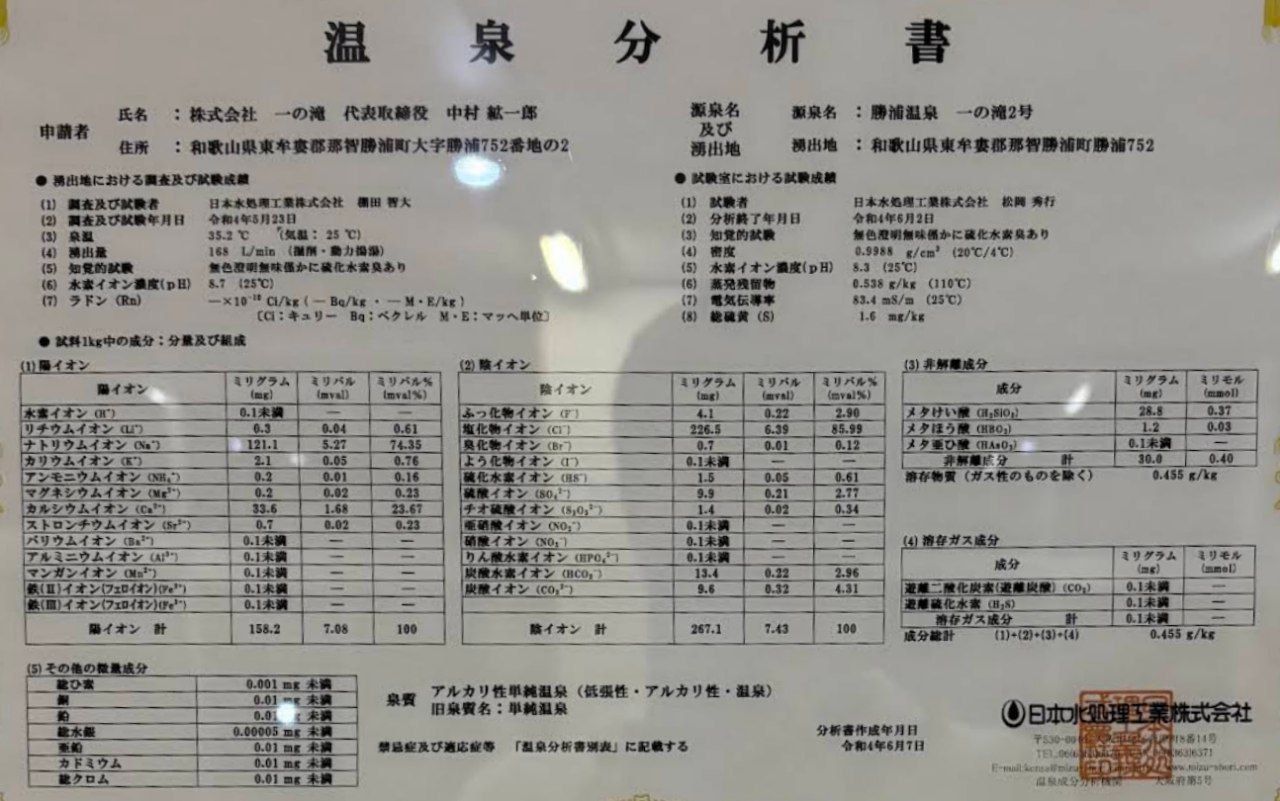 温泉分析書
申請者
氏名 : 株式会社 一の滝 代表取締役 中村 鉱一郎
住所 : 和歌山県東牟婁郡那智勝浦町大字勝浦752番地の2
源泉名及び湧出地
源泉名 : 勝浦温泉 一の滝2号
湧出地 : 和歌山県東牟婁郡那智勝浦町勝浦752
● 湧出地における調査及び試験成績
(1) 調査及び試験者 日本水処理工業株式会社 棚田 智大
(2) 調査及び試験年月日 令和4年5月23日
(3) 泉温 35.2 ℃ (気温: 25 ℃)
(4) 湧出量 168 L/min (掘削・動力揚湯)
(5) 知覚的試験 無色澄明無味僅かに硫化水素臭あり
(6) 水素イオン濃度(pH) 8.7 (25℃)
(7) ラドン (Rn) —×10⁻¹⁰ Ci/kg ( — Bq/kg ・ — M・E/kg )
〔Ci:キュリー Bq:ベクレル M・E:マッヘ単位〕
● 試験室における試験成績
(1) 試験者 日本水処理工業株式会社 松岡 秀行
(2) 分析終了年月日 令和4年6月2日
(3) 知覚的試験 無色澄明無味僅かに硫化水素臭あり
(4) 密度 0.9988 g/cm³ (20℃/4℃)
(5) 水素イオン濃度(pH) 8.3 (25℃)
(6) 蒸発残留物 0.538 g/kg (110℃)
(7) 電気伝導率 83.4 mS/m (25℃)
(8) 総硫黄 (S) 1.6 mg/kg
● 試料1kg中の成分:分量及び組成
(1) 陽イオン
陽イオン ミリグラム(mg) ミリバル(mval) ミリバル%(mval%)
水素イオン (H⁺) 0.1未満 — —
リチウムイオン (Li⁺) 0.3 0.04 0.61
ナトリウムイオン (Na⁺) 121.1 5.27 74.35
カリウムイオン (K⁺) 2.1 0.05 0.76
アンモニウムイオン (NH₄⁺) 0.2 0.01 0.16
マグネシウムイオン (Mg²⁺) 0.2 0.02 0.23
カルシウムイオン (Ca²⁺) 33.6 1.68 23.67
ストロンチウムイオン (Sr²⁺) 0.7 0.02 0.23
バリウムイオン (Ba²⁺) 0.1未満 — —
アルミニウムイオン (Al³⁺) 0.1未満 — —
マンガンイオン (Mn²⁺) 0.1未満 — —
鉄(Ⅱ)イオン(フェロイオン)(Fe²⁺) 0.1未満 — —
鉄(Ⅲ)イオン(フェロイオン)(Fe³⁺) 0.1未満 — —
陽イオン 計 158.2 7.08 100
(2) 陰イオン
陰イオン ミリグラム(mg) ミリバル(mval) ミリバル%(mval%)
ふっ化物イオン (F⁻) 4.1 0.22 2.90
塩化物イオン (Cl⁻) 226.5 6.39 85.99
臭化物イオン (Br⁻) 0.7 0.01 0.12
よう化物イオン (I⁻) 0.1未満 — —
硫化水素イオン (HS⁻) 1.5 0.05 0.61
硫酸イオン (SO₄²⁻) 9.9 0.21 2.77
チオ硫酸イオン (S₂O₃²⁻) 1.4 0.02 0.34
亜硝酸イオン (NO₂⁻) 0.1未満 — —
硝酸イオン (NO₃⁻) 0.1未満 — —
りん酸水素イオン (HPO₄²⁻) 0.1未満 — —
炭酸水素イオン (HCO₃⁻) 13.4 0.22 2.96
炭酸イオン (CO₃²⁻) 9.6 0.32 4.31
陰イオン 計 267.1 7.43 100
(3) 非解離成分
成分 ミリグラム(mg) ミリモル(mmol)
メタけい酸 (H₂SiO₃) 28.8 0.37
メタほう酸 (HBO₂) 1.2 0.03
メタ亜ひ酸 (HAsO₂) 0.1未満 —
非解離成分 計 30.0 0.40
溶存物質 (ガス性のものを除く) 0.455 g/kg
(4) 溶存ガス成分
成分 ミリグラム(mg) ミリモル(mmol)
遊離二酸化炭素(遊離炭酸) (CO₂) 0.1未満 —
遊離硫化水素 (H₂S) 0.1未満 —
溶存ガス成分 計 0.1未満 —
成分総計 (1)+(2)+(3)+(4) 0.455 g/kg
(5) その他の微量成分
総ひ素 0.001 mg 未満
銅 0.01 mg 未満
鉛 0.01 mg 未満
総水銀 0.00005 mg 未満
亜鉛 0.01 mg 未満
カドミウム 0.01 mg 未満
総クロム 0.01 mg 未満
泉質 アルカリ性単純温泉 (低張性・アルカリ性・温泉)
旧泉質名:単純温泉
禁忌症及び適応症等 「温泉分析書別表」に記載する
分析書作成年月日
令和4年6月7日
日本水処理工業株式会社
温泉成分分析機関 大阪府第5号